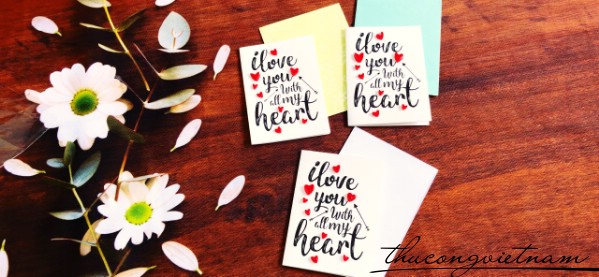 i love
you
with
all my
heart
i love
you
with
all my
heart
i love
you
with
all my
heart
thucongvietnam